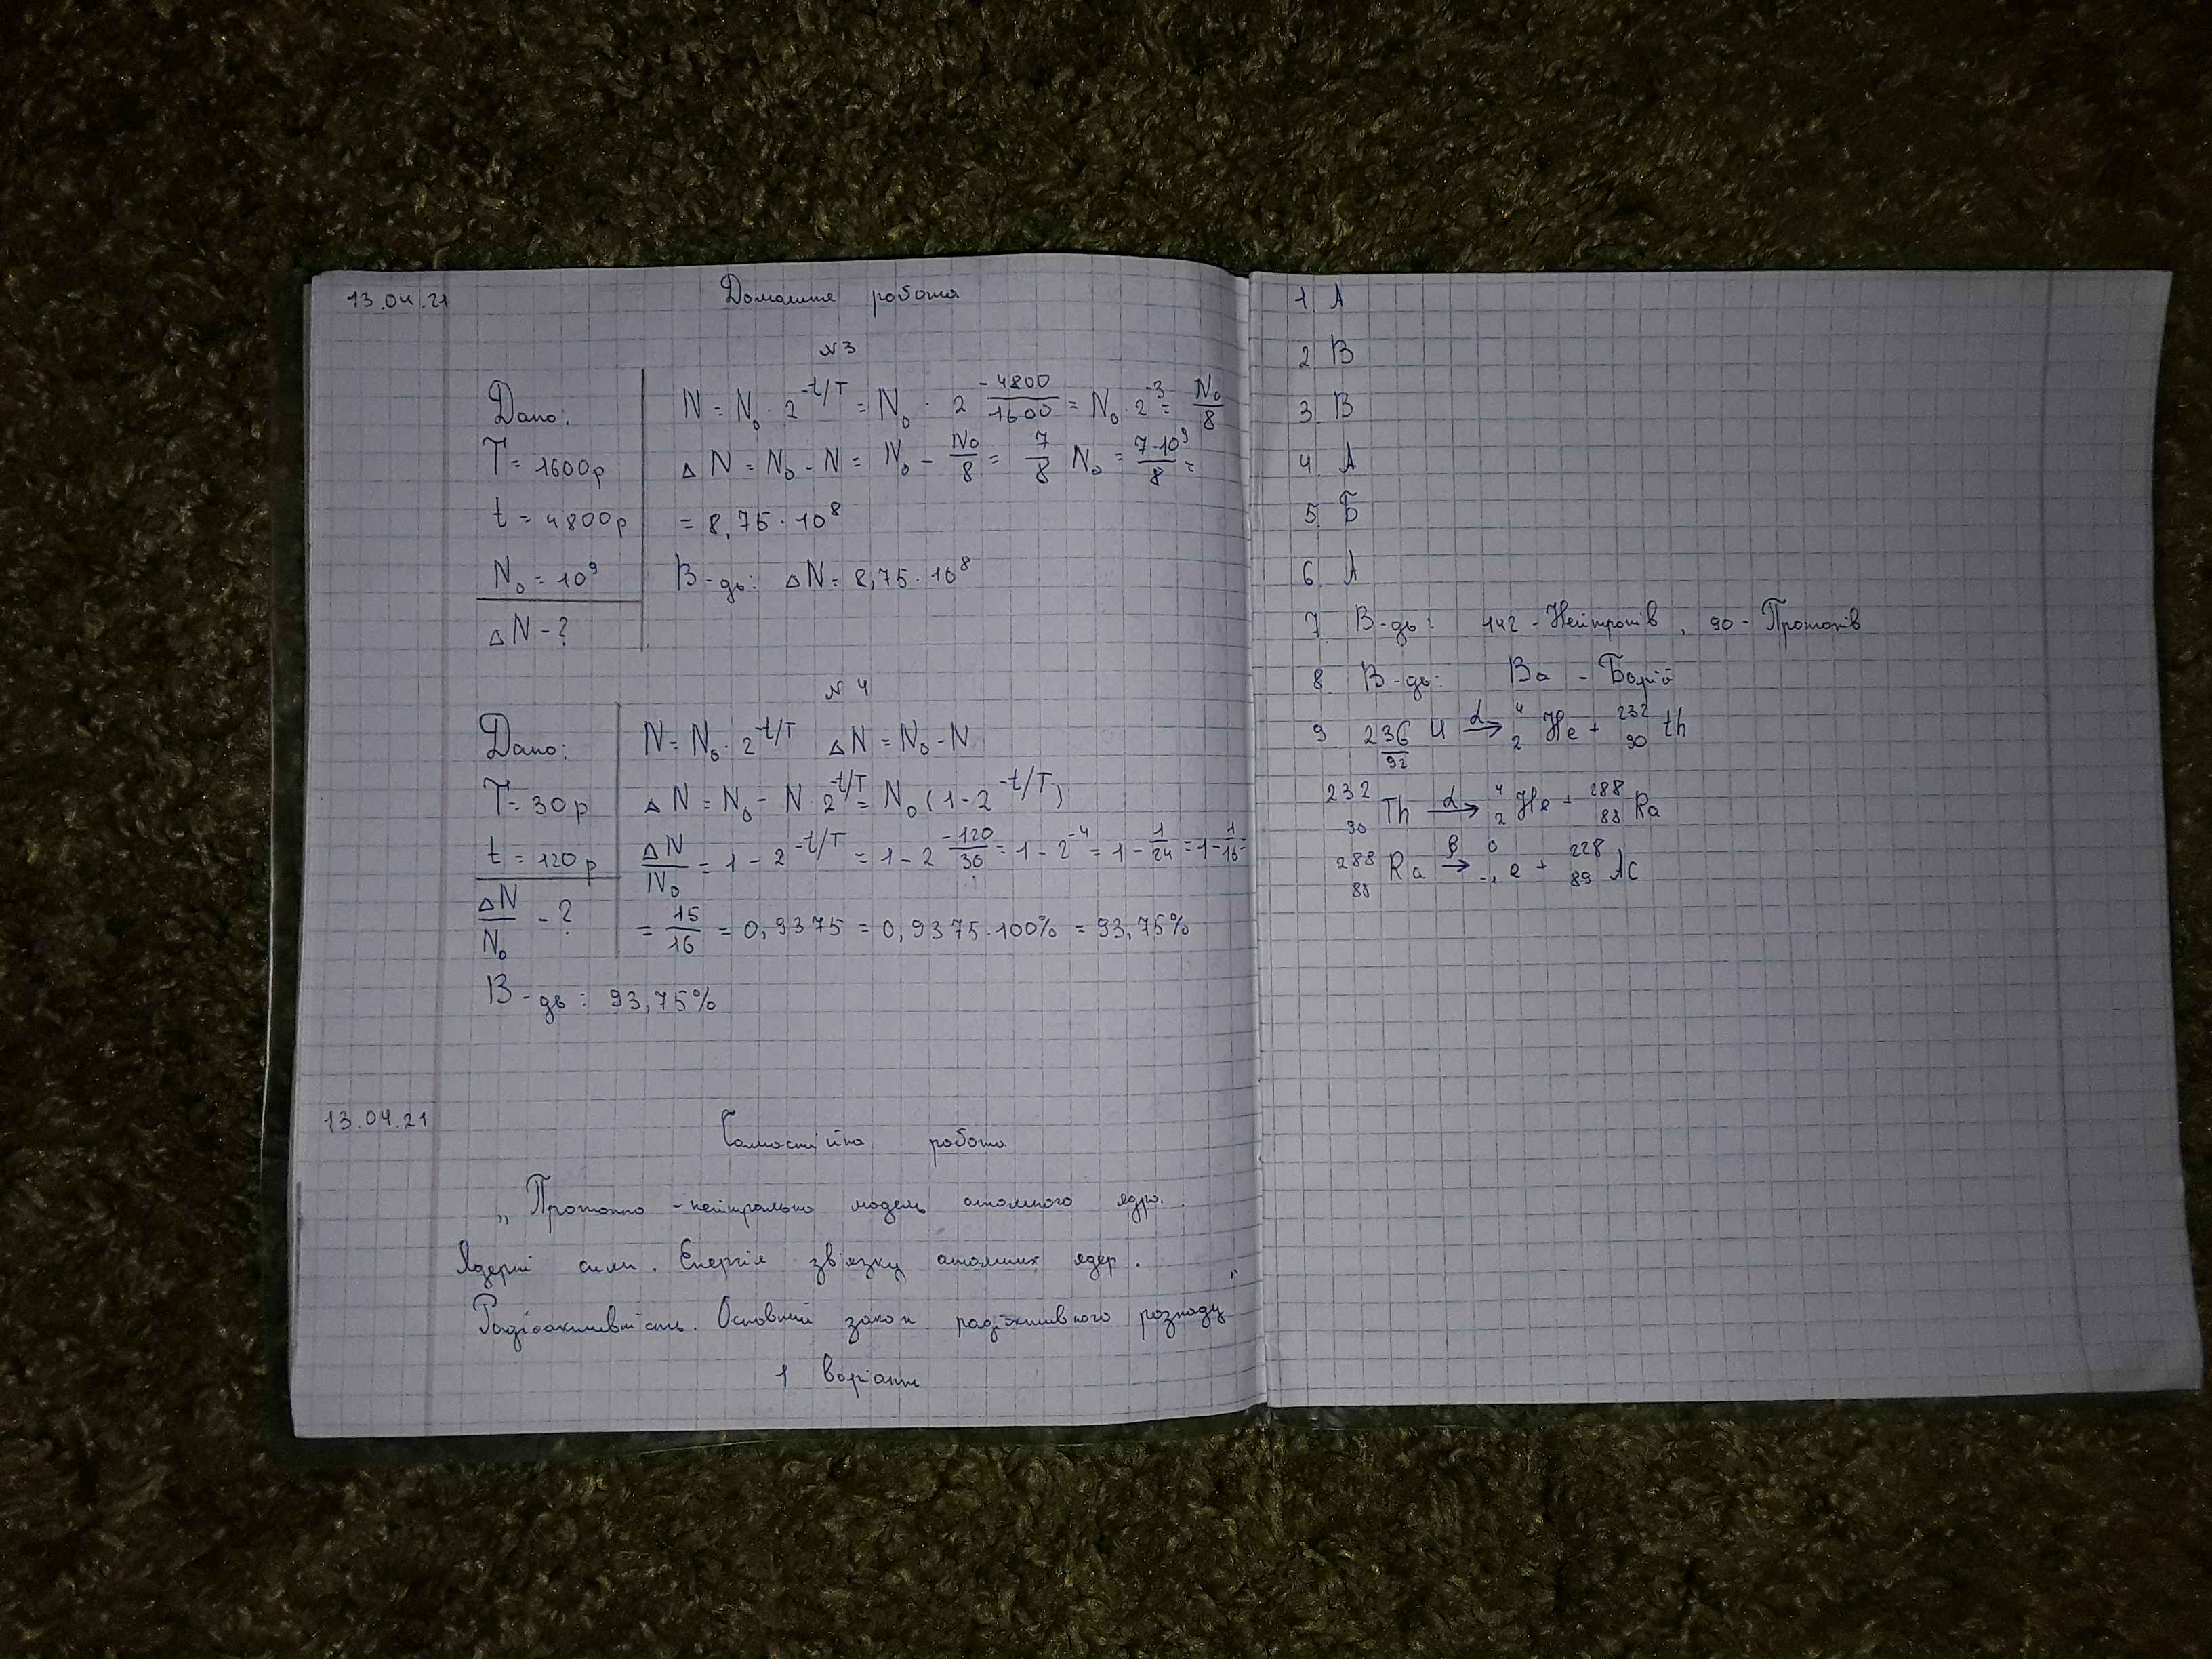 13.04.21 Домашня робота
№3
Дано: N = N₀ · 2^(-t/T) = N₀ · 2^(-4800/1600) = N₀ · 2^(-3) = N₀/8
T = 1600р ΔN = N₀ - N = N₀ - N₀/8 = 7/8 N₀ = 7·10⁹/8 =
t = 4800р = 8,75 · 10⁸
N₀ = 10⁹ В-дь: ΔN = 8,75 · 10⁸
ΔN - ?
№4
Дано: N = N₀ · 2^(-t/T) ΔN = N₀ - N
T = 30р ΔN = N₀ - N · 2^(-t/T) = N₀ (1 - 2^(-t/T))
t = 120р ΔN/N₀ = 1 - 2^(-t/T) = 1 - 2^(-120/30) = 1 - 2^(-4) = 1 - 1/24 = 1 - 1/16 =
ΔN/N₀ - ? = 15/16 = 0,9375 = 0,9375 · 100% = 93,75%
В-дь: 93,75%
13.04.21
Самостійна робота
„Протонно - нейтральна модель атомного ядра.
Ядерні сили. Енергія зв'язку атомних ядер.
Радіоактивність. Основний закон радіоактивного розпаду"
1 варіант
1. А
2. В
3. В
4. А
5. Б
6. А
7. В-дь: 142 - Нейтронів, 90 - Протонів
8. В-дь: Ba - Барій
9. ²³⁶₉₂U α→ ⁴₂He + ²³²₉₀th
²³²₉₀Th α→ ⁴₂He + ²⁸⁸₈₈Ra
²⁸⁸₈₈Ra β→ ⁰₋₁e + ²²⁸₈₉Ac